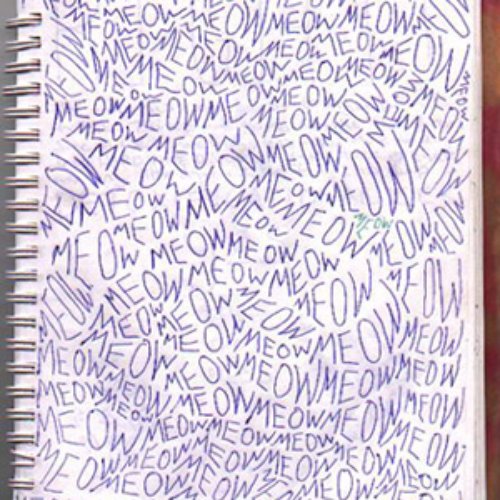 MEOW MEOW MEOW MEOW MEOW
MEOW MEOW MEOW MEOW MEOW MEOW
MEOW MEOW MEOW MEOW MEOW MEOW
MEOW MEOW MEOW MEOW MEOW MEOW
MEOW MEOW MEOW MEOW MEOW MEOW
MEOW MEOW MEOW MEOW MEOW
MEOW MEOW MEOW MEOW MEOW
MEOW MEOW MEOW MEOW MEOW
MEOW MEOW MEOW MEOW MEOW
MEOW MEOW MEOW MEOW MEOW MEOW
MEOW MEOW MEOW MEOW MEOW
MEOW MEOW MEOW MEOW MEOW
MEOW MEOW MEOW MEOW MEOW
MEOW MEOW MEOW MEOW MEOW
MEOW MEOW MEOW MEOW MEOW
MEOW MEOW MEOW MEOW MEOW
MEOW MEOW MEOW MEOW MEOW
MEOW MEOW MEOW MEOW MEOW
MEOW MEOW MEOW MEOW MEOW